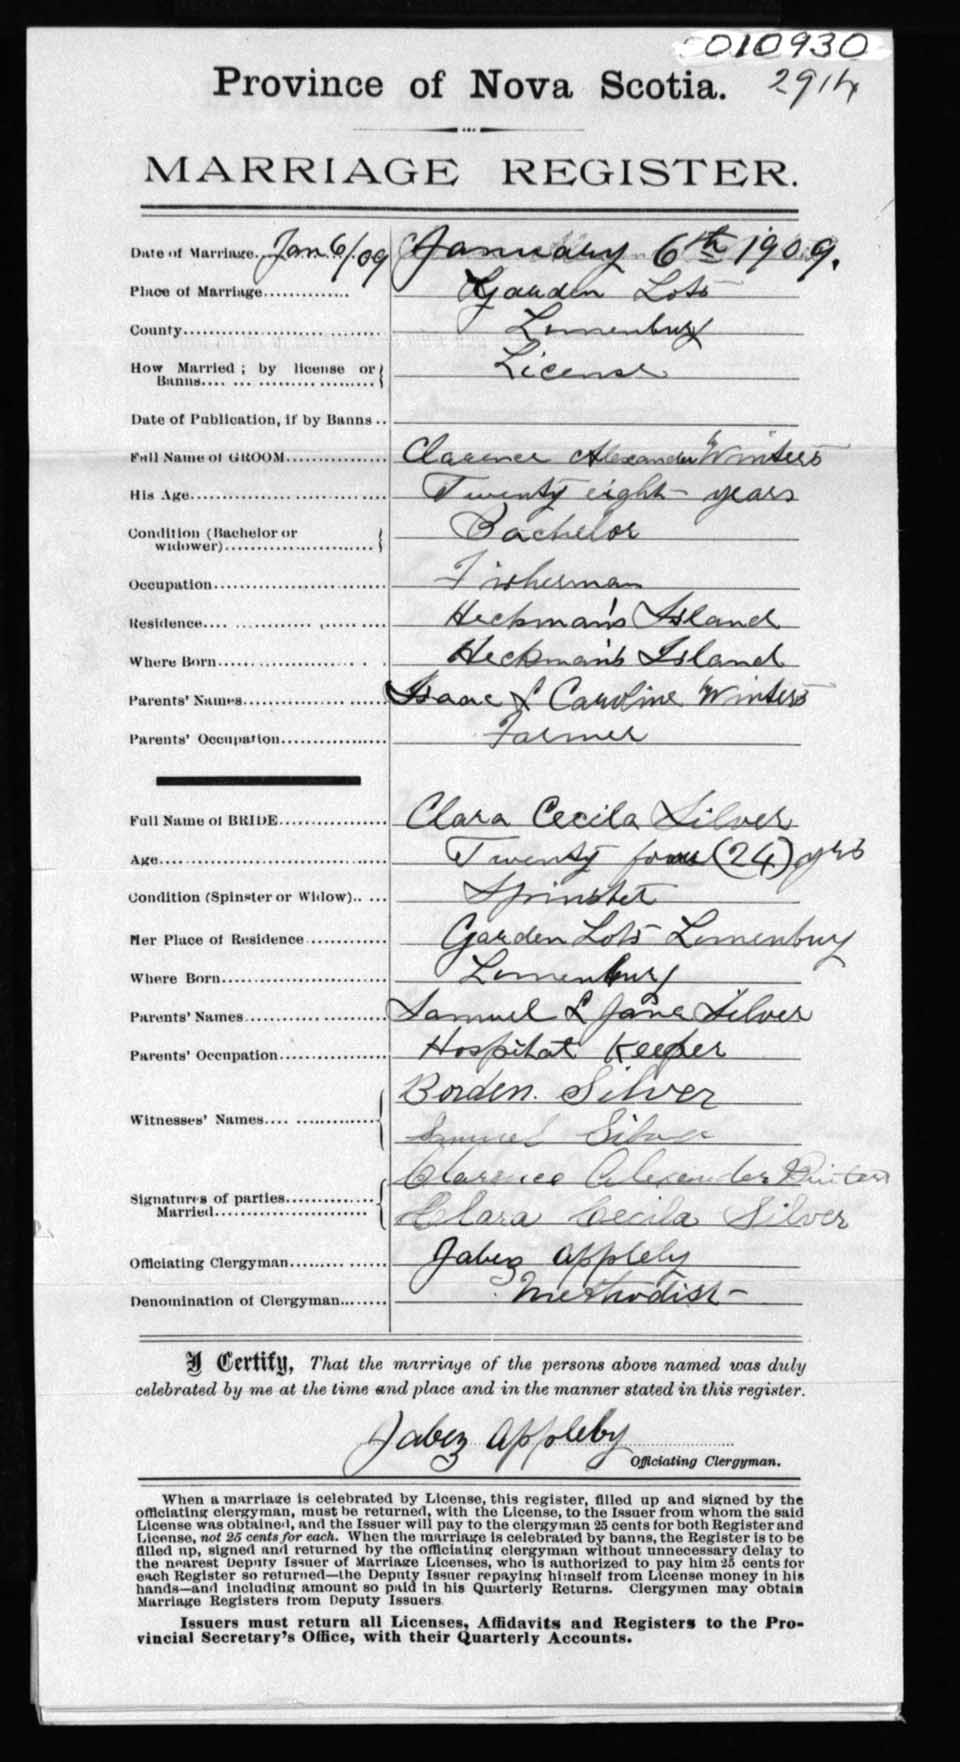 010930
Province of Nova Scotia. 2914
MARRIAGE REGISTER.
Date of Marriage. Jan 6/09 January 6th 1909.
Place of Marriage.............. Garden Lots
County............................... Lunenburg
How Married ; by license or License
Banns.... ... .....................
Date of Publication, if by Banns ..
Full Name of GROOM................. Clarence Alexander Winters
His Age................................. Twenty eight years
Condition (Bachelor or Bachelor
widower).........................
Occupation............................. Fisherman
Residence.... ............. ...... .... Heckman's Island
Where Born.............................. Heckman's Island
Parents' Names........................ Isaac & Caroline Winters
Parents' Occupation................. Farmer
Full Name of BRIDE................. Clara Cecila Silver
Age....................................... Twenty four (24) yrs
Condition (Spinster or Widow).. ... Spinster
Her Place of Residence ............ Garden Lots Lunenburg
Where Born............................. Lunenburg
Parents' Names........................ Samuel & Jane Silver
Parents' Occupation................. Hospital Keeper
Borden. Silver
Witnesses' Names.... ...............
Samuel Silver
Clarence Alexander Winters
Signatures of parties..................
Married.......................... Clara Cecila Silver
Officiating Clergyman................ Jabez Appleby
Denomination of Clergyman......... Methodist
I Certify, That the marriage of the persons above named was duly
celebrated by me at the time and place and in the manner stated in this register.
Jabez Appleby
Officiating Clergyman.
When a marriage is celebrated by License, this register, filled up and signed by the
officiating clergyman, must be returned, with the License, to the Issuer from whom the said
License was obtained, and the Issuer will pay to the clergyman 25 cents for both Register and
License, not 25 cents for each. When the marriage is celebrated by banns, the Register is to be
filled up, signed and returned by the officiating clergyman without unnecessary delay to
the nearest Deputy Issuer of Marriage Licenses, who is authorized to pay him 25 cents for
each Register so returned—the Deputy Issuer repaying himself from License money in his
hands—and including amount so paid in his Quarterly Returns. Clergymen may obtain
Marriage Registers from Deputy Issuers.
Issuers must return all Licenses, Affidavits and Registers to the Pro-
vincial Secretary's Office, with their Quarterly Accounts.